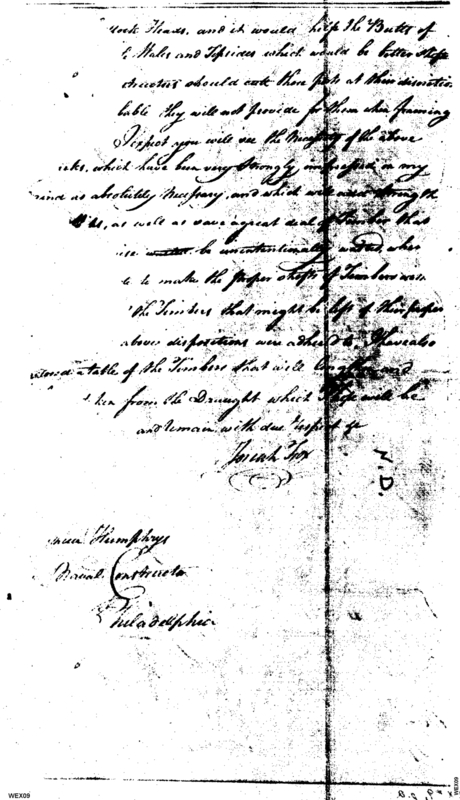 Heads, and it would help the Butts of
Wales and Topsides which would be better
should cut those parts at their discretio
bable they will not provide for them when framing
I expect you will see the Necessity of the above
rks, which have been very strongly impressed on my
mind as absolutely Necessary, and which will
as well as save a great deal of Timber that
be unintentionally wasted, when
to make the proper shifts of Timbers
the Timbers that might be left of their proper
above dispositions were adhered to. I have also
a table of the Timbers that will
from the Draught which I hope will be
and remain with due respect &c
Josiah Fox
N.D.
Humphrys
Naval Constructor
Philadelphia
WEX09
WEX09